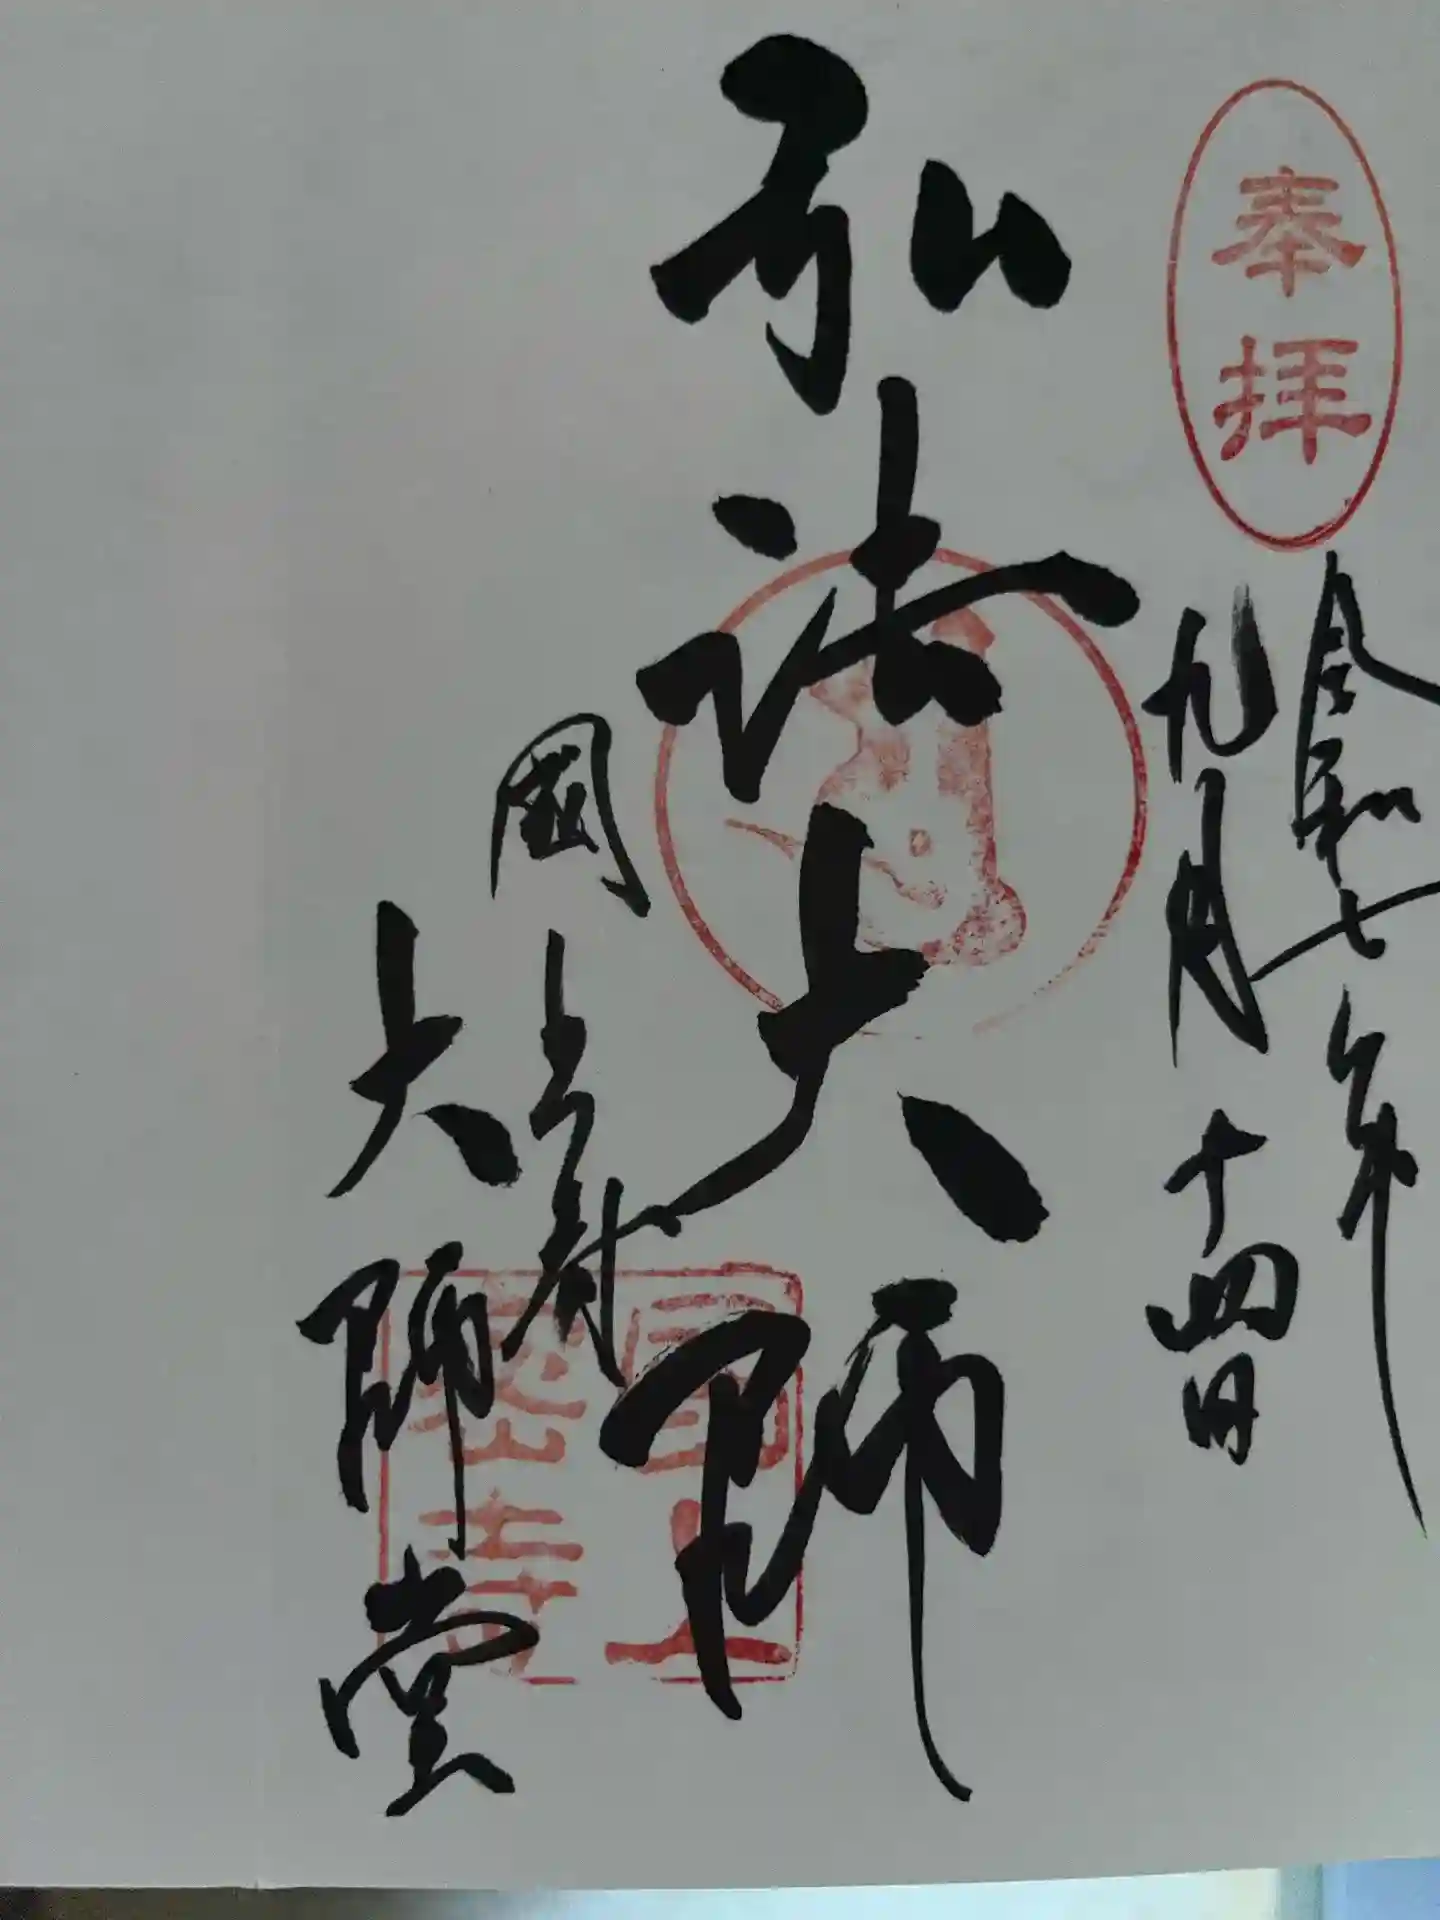 奉拝
令和七年
九月十四日
弘法大師
國上寺
大師堂
國上
密寺